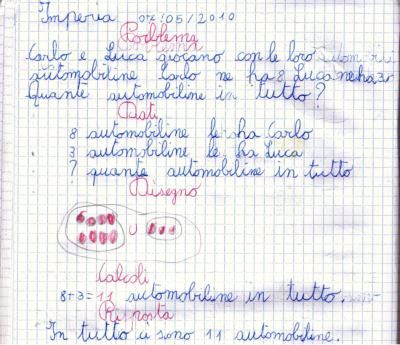 Imperia 02/05/2010
Problema
Carlo e Luca giocano con le loro
automobiline Carlo ne ha 8 Luca ne ha 3
Quante automobiline in tutto?
Dati
8 automobiline le ha Carlo
3 automobiline le ha Luca
? quante automobiline in tutto
Disegno
U
Calcoli
8+3=11 automobiline in tutto.
Risposta
In tutto ci sono 11 automobiline.